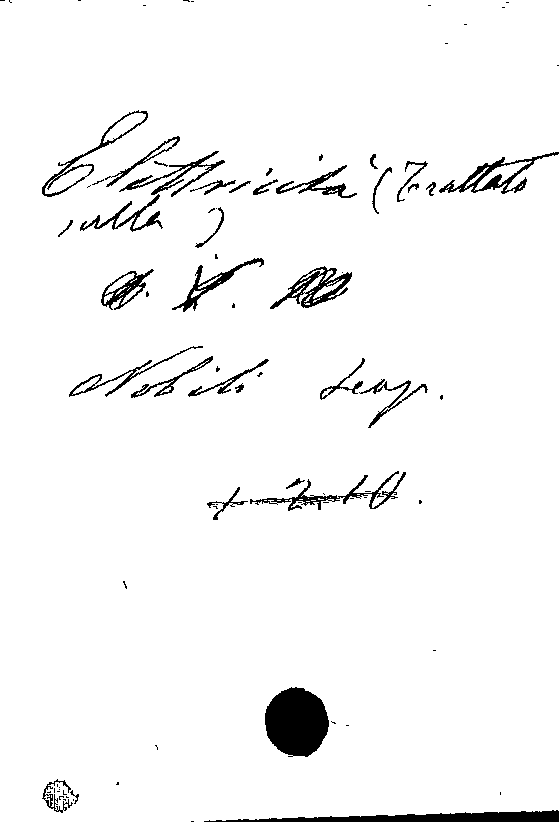 Elettricità (Trattato
sulla)
V.
Nobili Leop.
1 2 10.